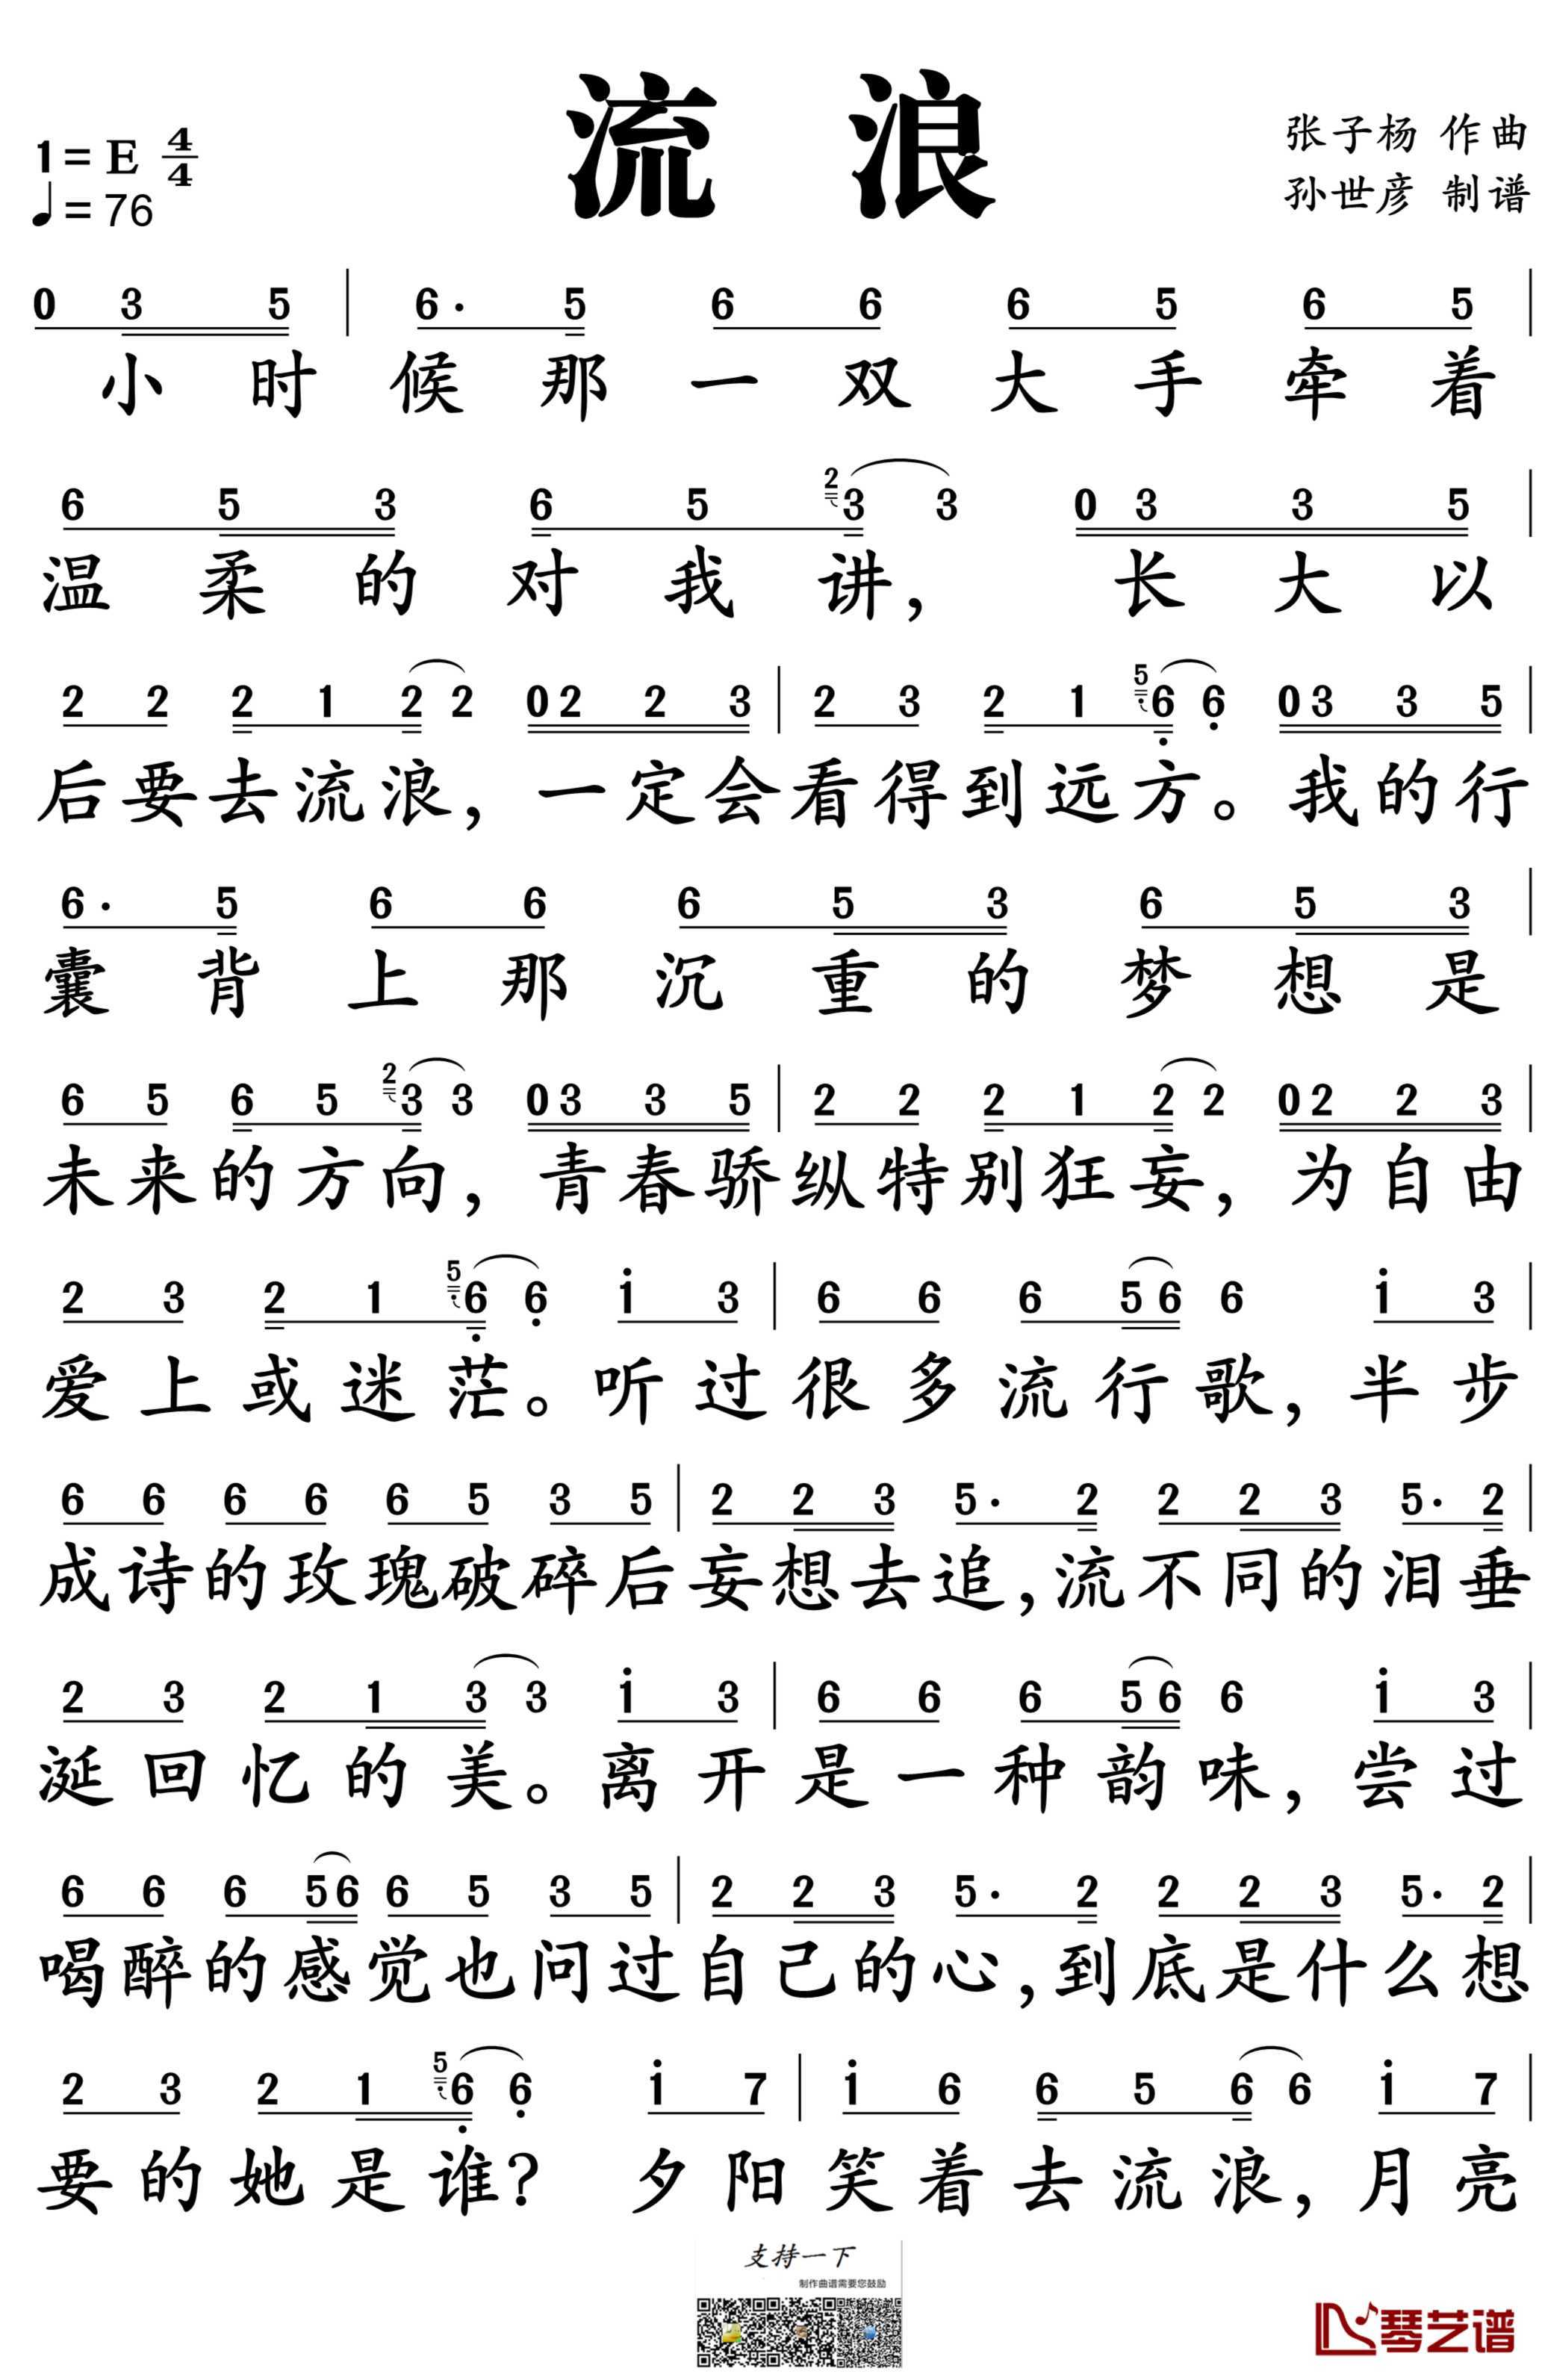 流 浪
1=E 4/4
♩=76
张子杨 作曲
孙世彦 制谱
0 3 5 | 6· 5 6 6 6 5 6 5 |
小时候那一双大手牵着
6 5 3 6 5 2 3 3 0 3 3 5 |
温柔的对我讲，长大以
2 2 2 1 2 2 0 2 2 3 | 2 3 2 1 5̣ 6̣ 6̣ 0 3 3 5 |
后要去流浪，一定会看得到远方。我的行
6· 5 6 6 6 5 3 6 5 3 |
囊背上那沉重的梦想是
6 5 6 5 2 3 3 0 3 3 5 | 2 2 2 1 2 2 0 2 2 3 |
未来的方向，青春骄纵特别狂妄，为自由
2 3 2 1 5̣ 6̣ 6̣ i 3 | 6 6 6 5 6 6 i 3 |
爱上或迷茫。听过很多流行歌，半步
6 6 6 6 6 5 3 5 | 2 2 3 5· 2 2 2 3 5· 2 |
成诗的玫瑰破碎后妄想去追，流不同的泪垂
2 3 2 1 3 3 i 3 | 6 6 6 5 6 6 i 3 |
涎回忆的美。离开是一种韵味，尝过
6 6 6 5 6 6 5 3 5 | 2 2 3 5· 2 2 2 3 5· 2 |
喝醉的感觉也问过自己的心，到底是什么想
2 3 2 1 5̣ 6̣ 6̣ i 7 | i 6 6 5 6 6 i 7 |
要的她是谁？夕阳笑着去流浪，月亮
支持一下
制作曲谱需要您鼓励
琴艺谱